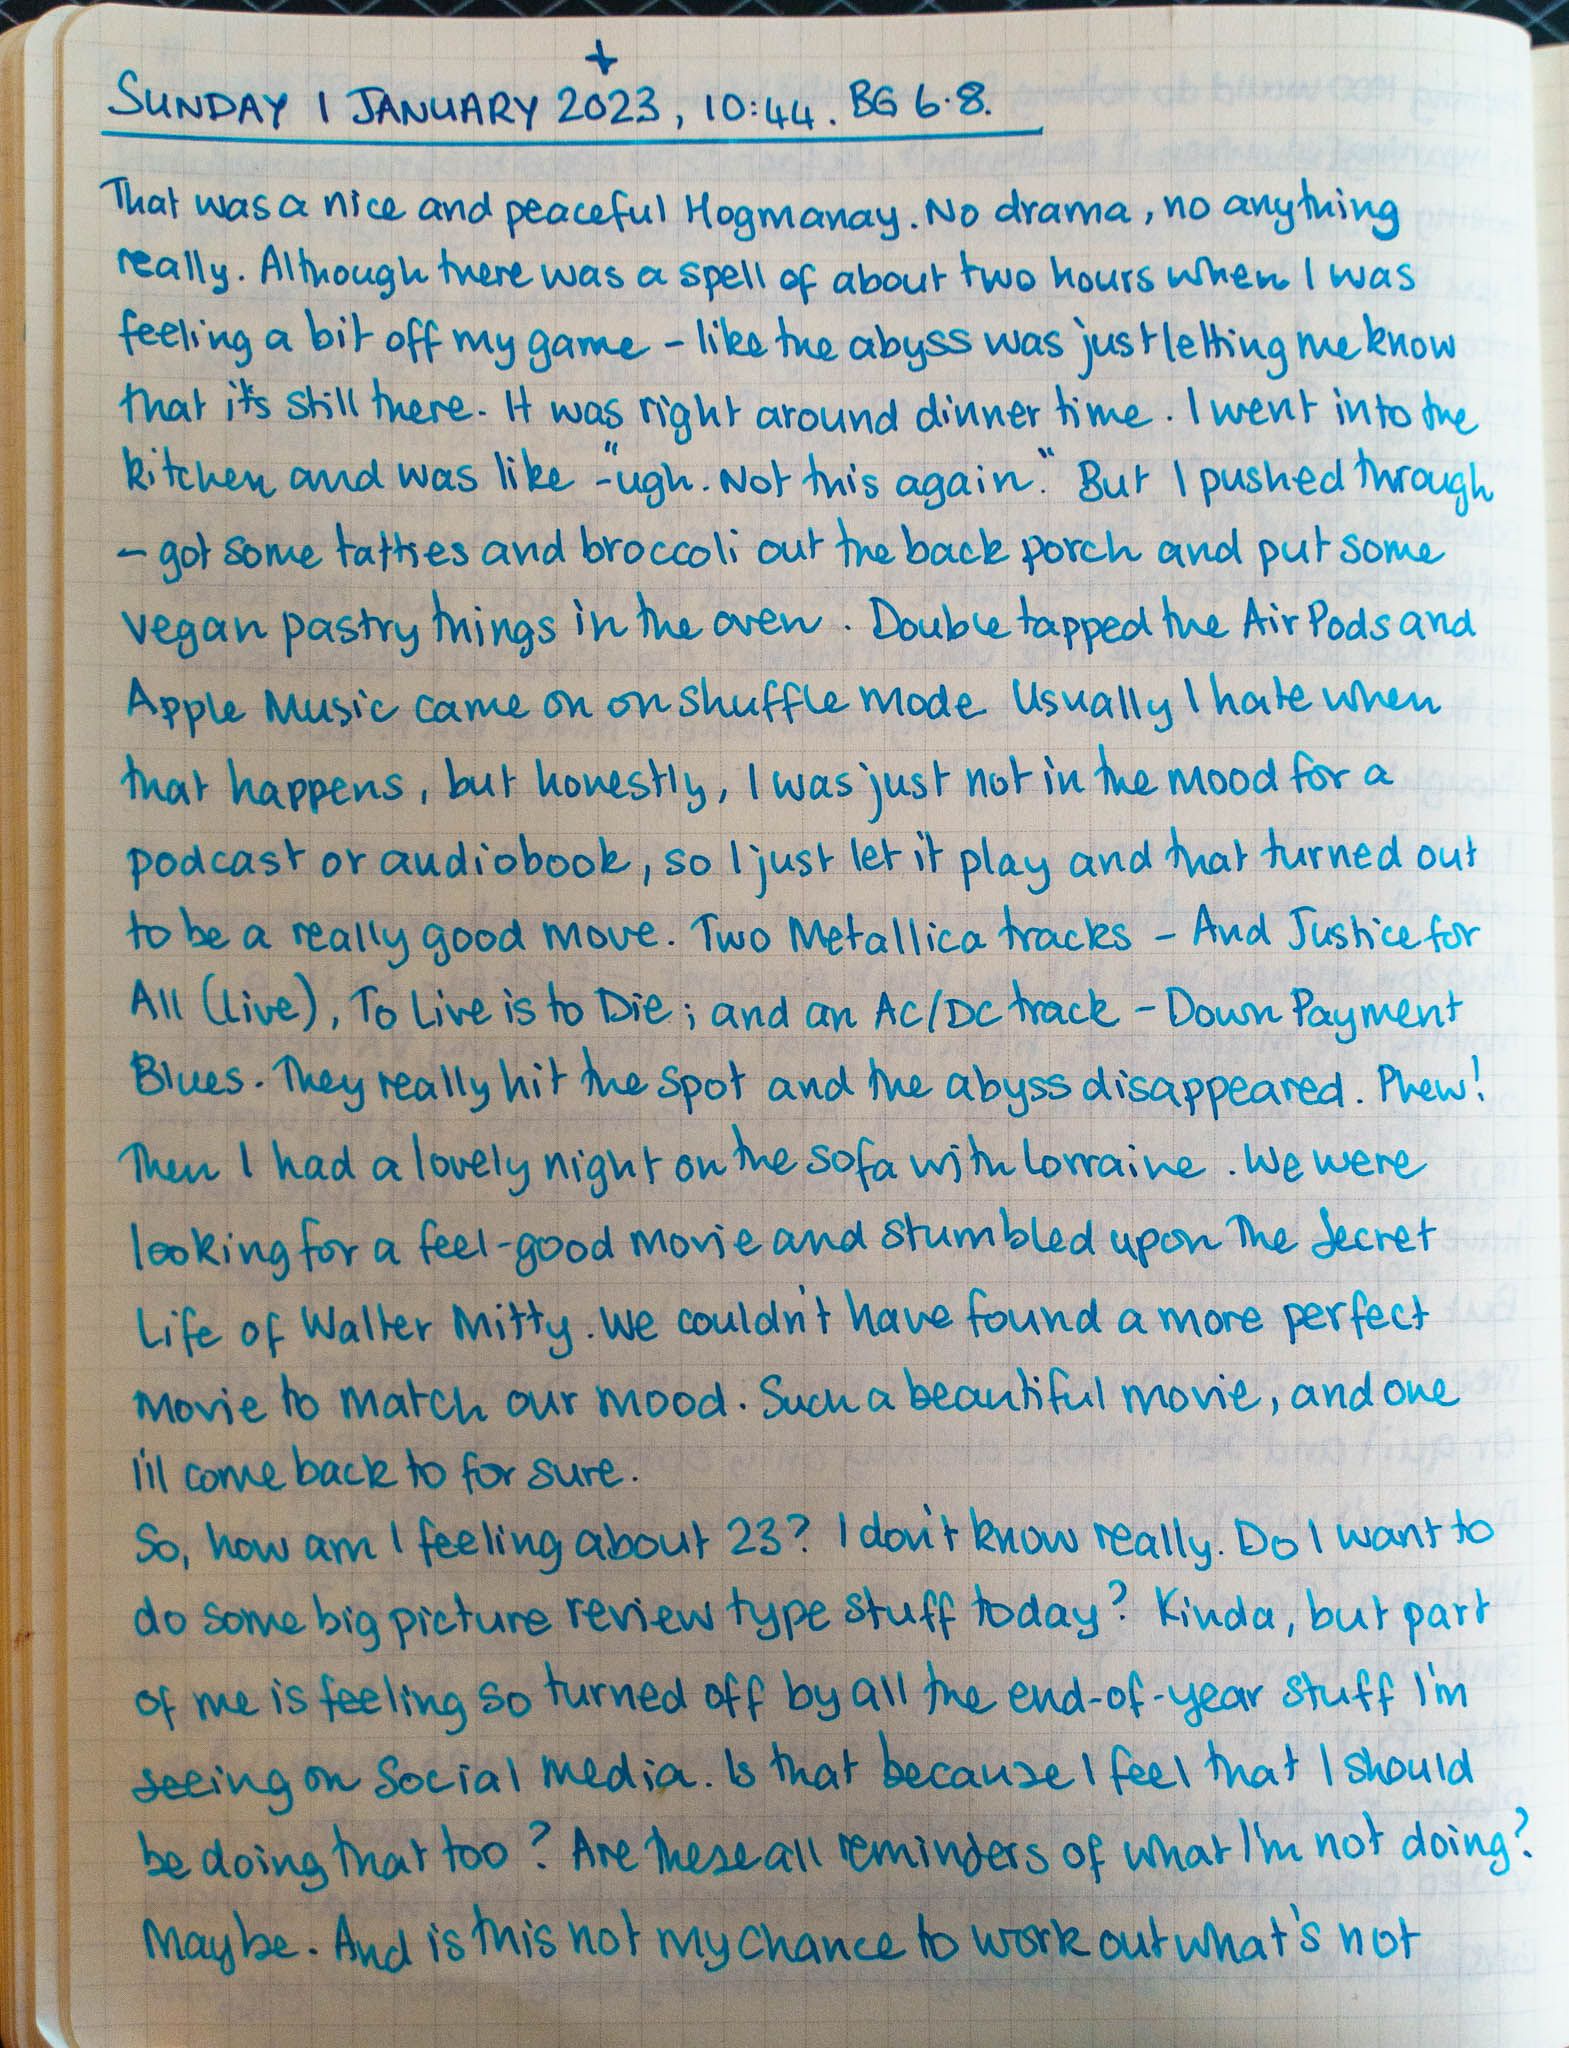 +
SUNDAY 1 JANUARY 2023, 10:44. BG 6.8.
That was a nice and peaceful Hogmanay. No drama, no anything
really. Although there was a spell of about two hours when I was
feeling a bit off my game - like the abyss was just letting me know
that it's still there. It was right around dinner time. I went into the
kitchen and was like -"ugh. Not this again." But I pushed through
- got some tatties and broccoli out the back porch and put some
vegan pastry things in the oven. Double tapped the AirPods and
Apple Music came on on shuffle mode. Usually I hate when
that happens, but honestly, I was just not in the mood for a
podcast or audiobook, so I just let it play and that turned out
to be a really good move. Two Metallica tracks - And Justice for
All (Live), To Live is to Die; and an AC/DC track - Down Payment
Blues. They really hit the spot and the abyss disappeared. Phew!
Then I had a lovely night on the sofa with Lorraine. We were
looking for a feel-good movie and stumbled upon The Secret
Life of Walter Mitty. We couldn't have found a more perfect
movie to match our mood. Such a beautiful movie, and one
I'll come back to for sure.
So, how am I feeling about 23? I don't know really. Do I want to
do some big picture review type stuff today? Kinda, but part
of me is feeling so turned off by all the end-of-year stuff I'm
seeing on social media. Is that because I feel that I should
be doing that too? Are these all reminders of what I'm not doing?
Maybe. And is this not my chance to work out what's not